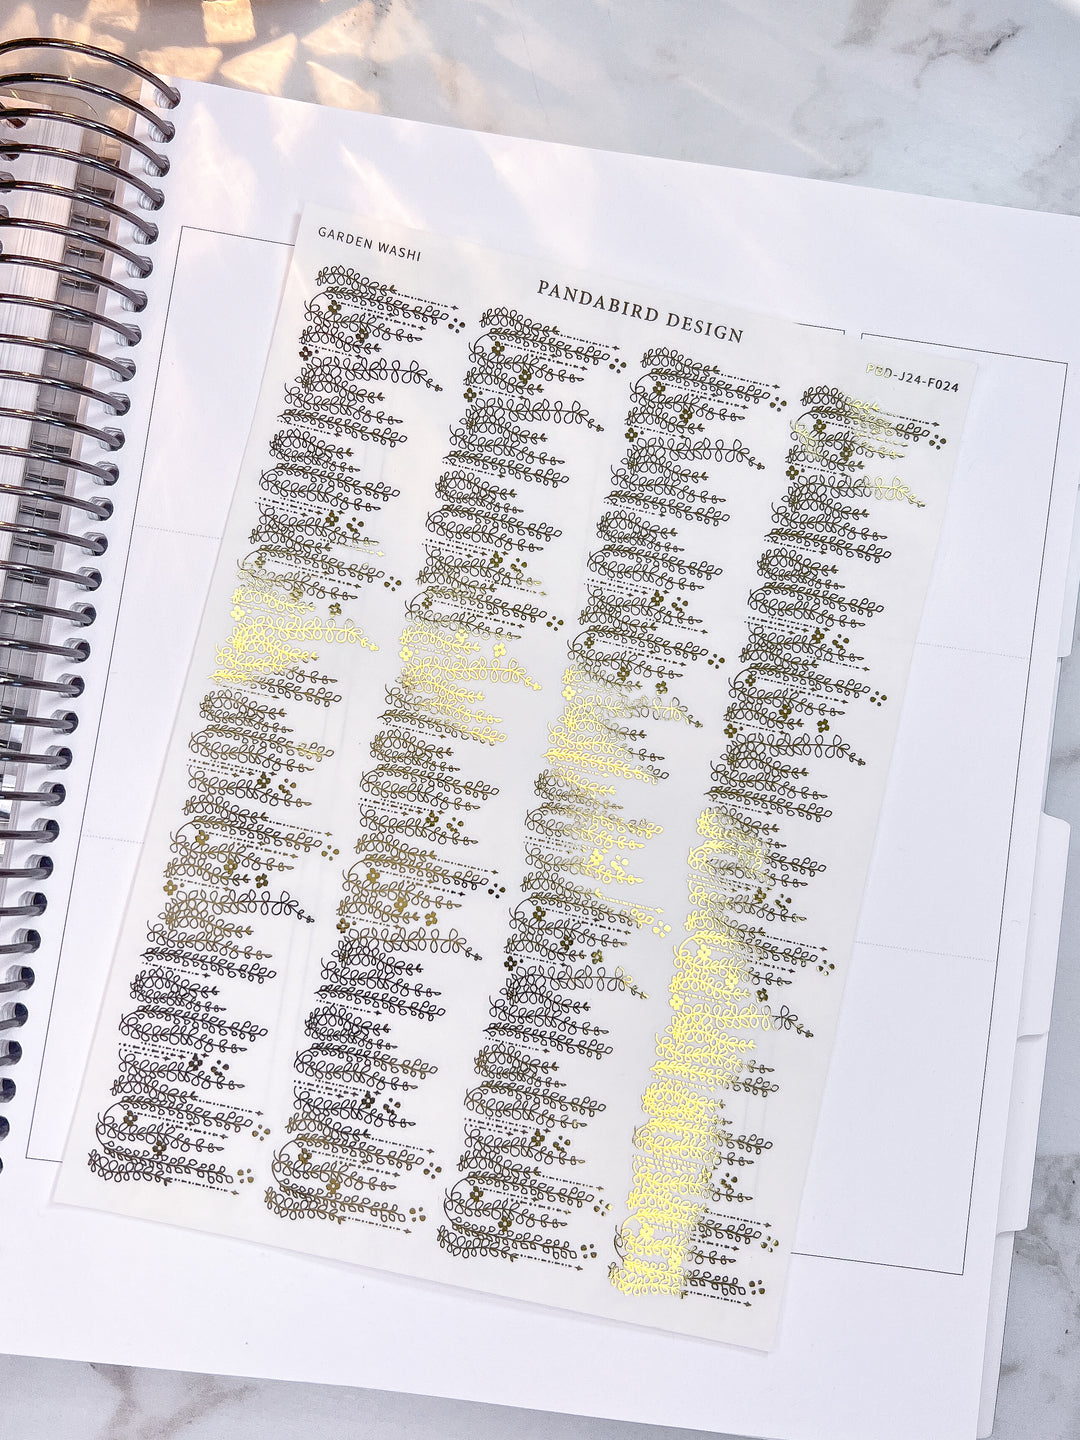 GARDEN WASHI
PANDABIRD DESIGN
PBD-J24-F024